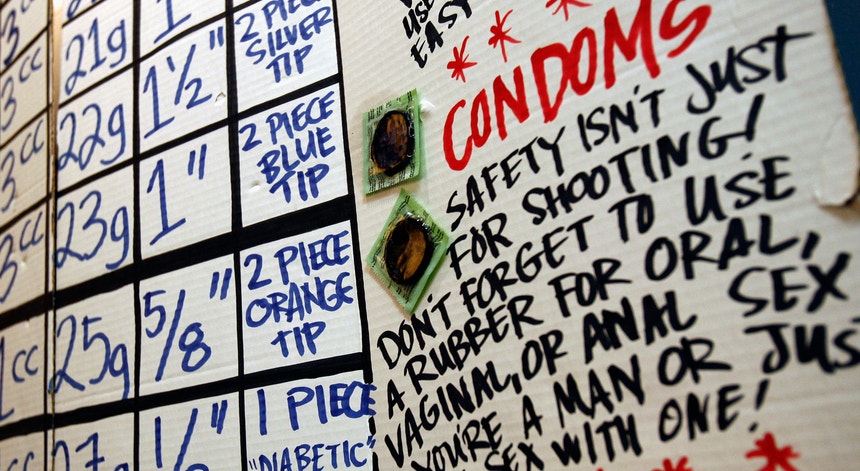 3cc 21g 1" 2 PIECE SILVER TIP
3cc 22g 1½" 2 PIECE BLUE TIP
3cc 23g 1" 2 PIECE ORANGE TIP
1cc 25g 5/8"
27g 1/2" 1 PIECE "DIABETIC"
USE
EASY
* * * *
CONDOMS
SAFETY ISN'T JUST
FOR SHOOTING!
DON'T FORGET TO USE
A RUBBER FOR ORAL,
VAGINAL, OR ANAL SEX
YOU'RE A MAN OR JUS
SEX WITH ONE!